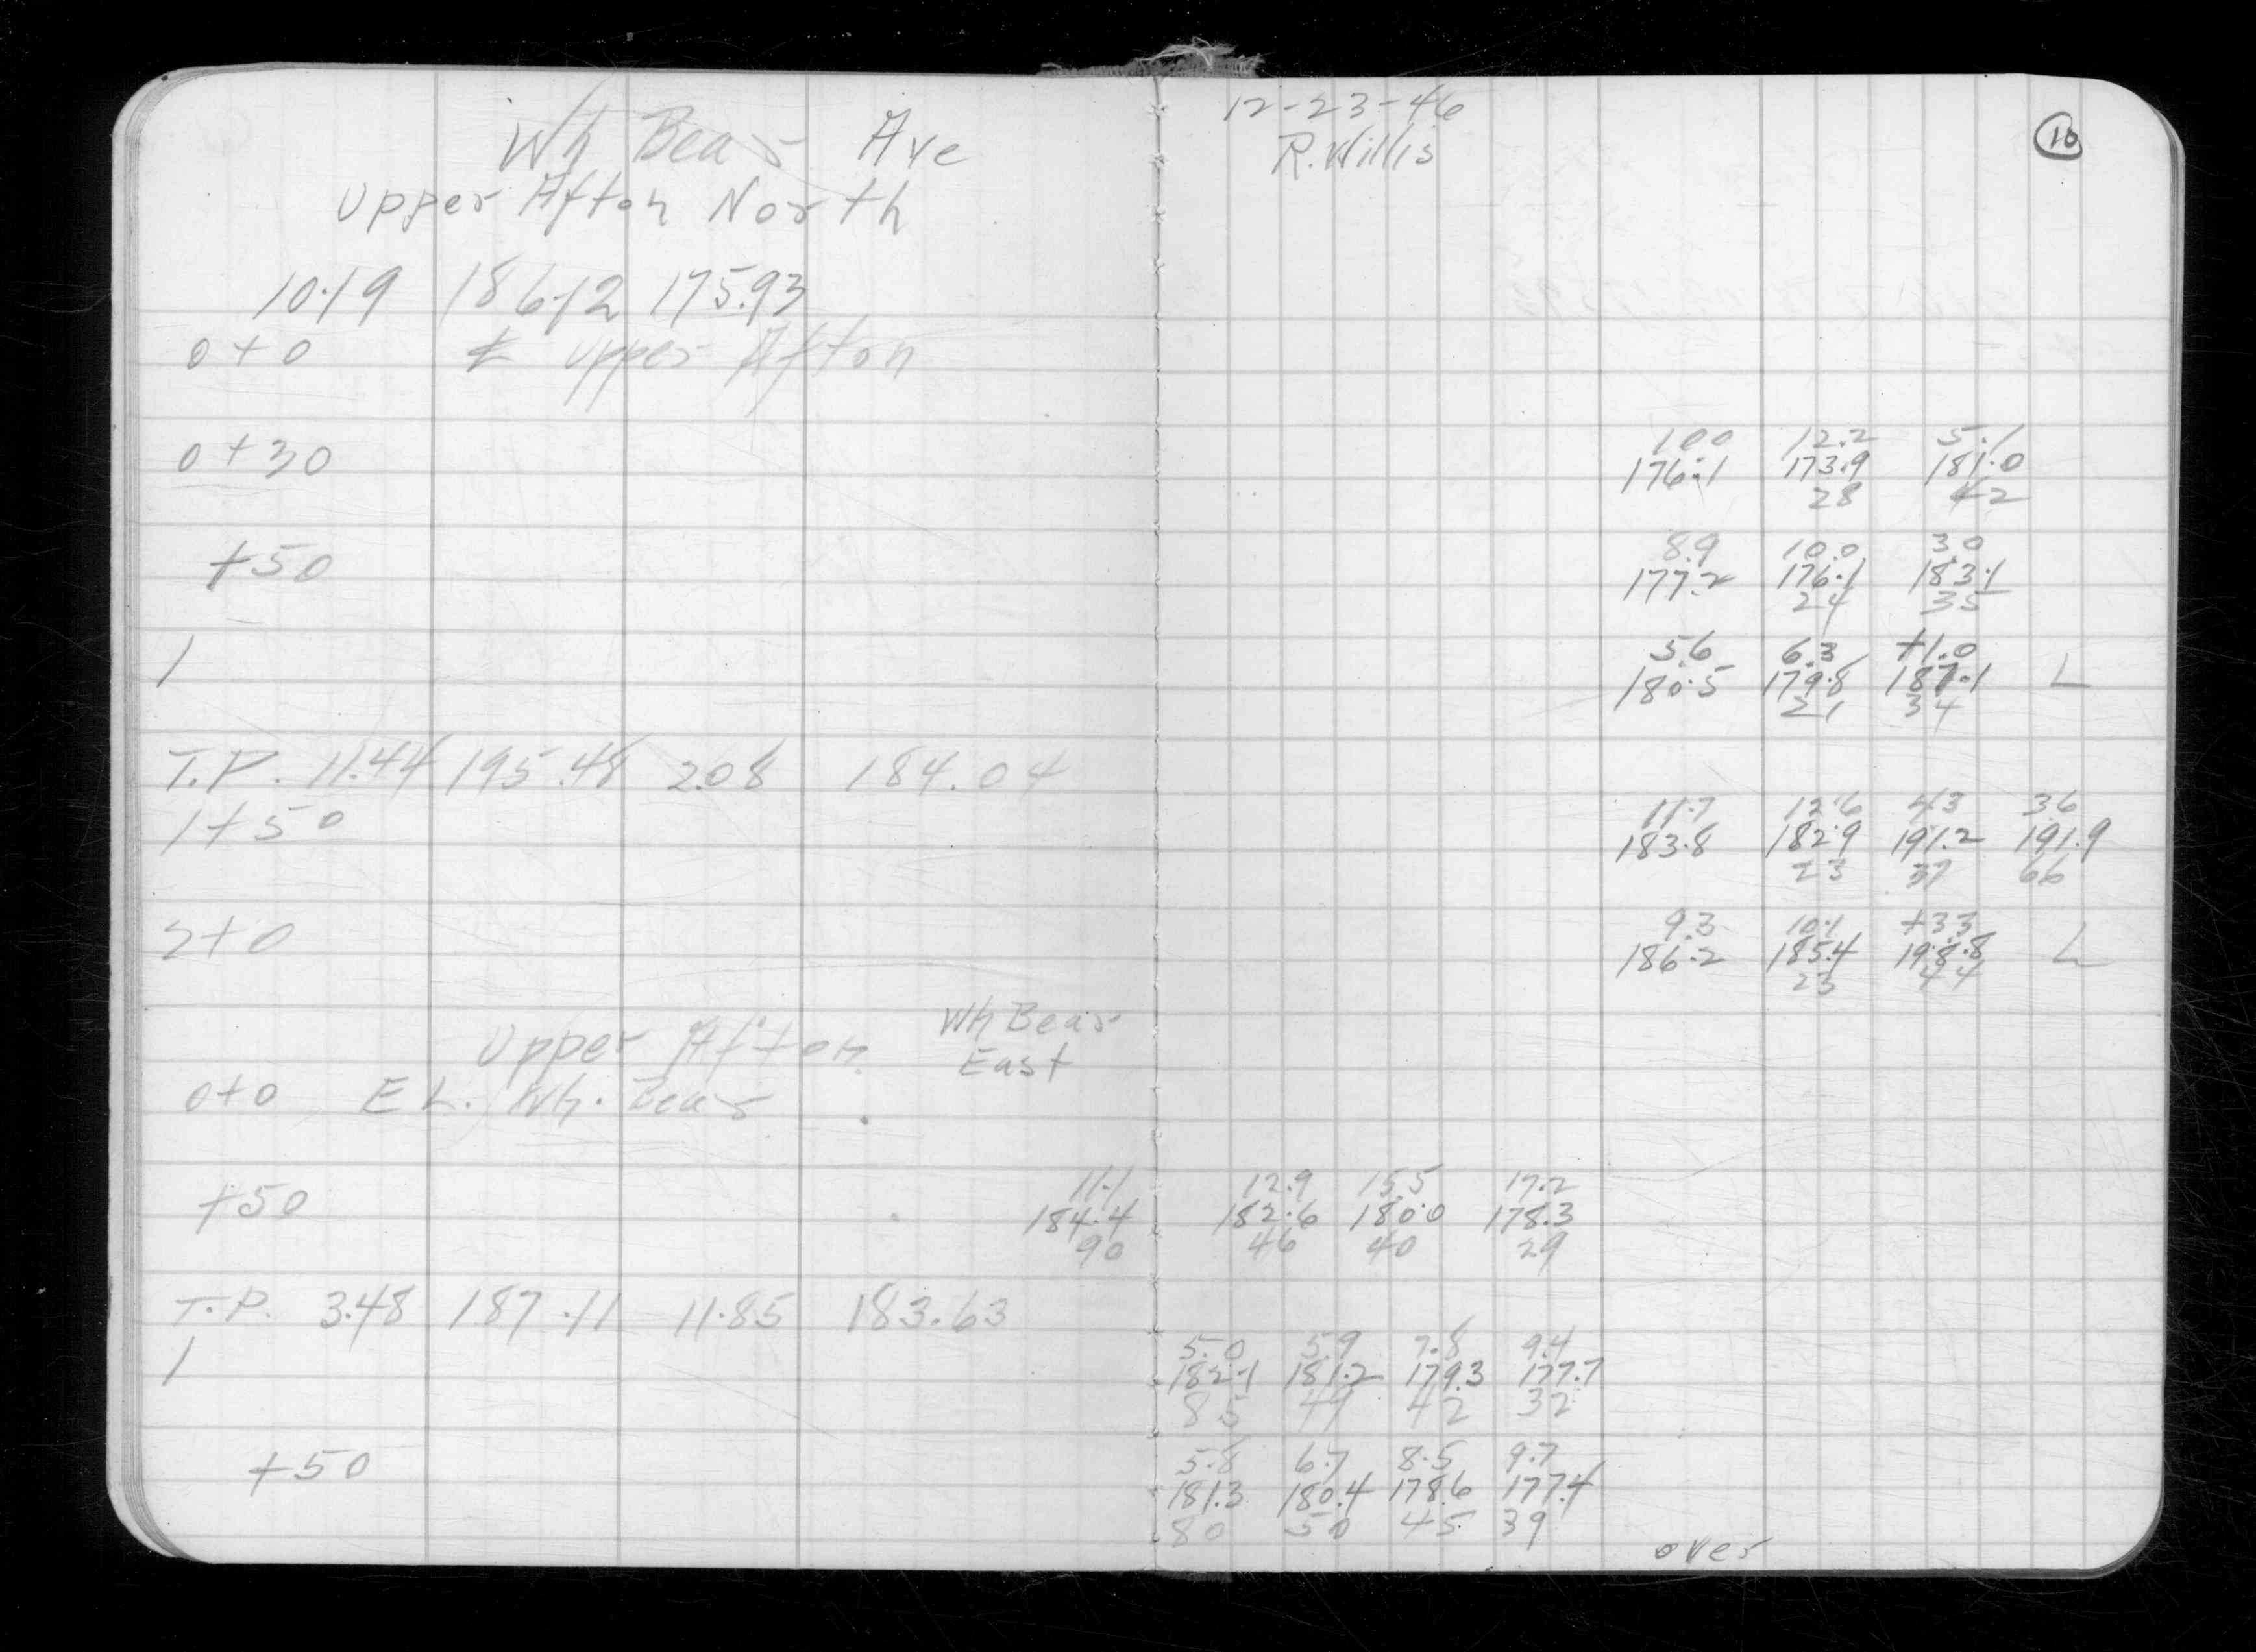 Wh Bear Ave
Upper Afton North
12-23-46
R. Willis
10
10.19 186.12 175.93
0+0 ℄ Upper Afton
0+30
10.0 12.2 5.1
176.1 173.9 181.0
28 42
+50
8.9 10.0 3.0
177.2 176.1 183.1
24 35
1
5.6 6.3 +1.0
180.5 179.8 187.1 L
21 34
T.P. 11.44 195.48 2.08 184.04
1+50
11.7 12.6 4.3 3.6
183.8 182.9 191.2 191.9
23 37 66
2+0
9.3 10.1 +3.3
186.2 185.4 198.8 L
23 44
Upper Afton Wh Bear
East
0+0 E L. Wh. Bear
+50
11.1 12.9 15.5 17.2
184.4 182.6 180.0 178.3
90 46 40 29
T.P. 3.48 187.11 11.85 183.63
1
5.0 5.9 7.8 9.4
182.1 181.2 179.3 177.7
85 49 42 32
+50
5.8 6.7 8.5 9.7
181.3 180.4 178.6 177.4
80 50 45 39
over